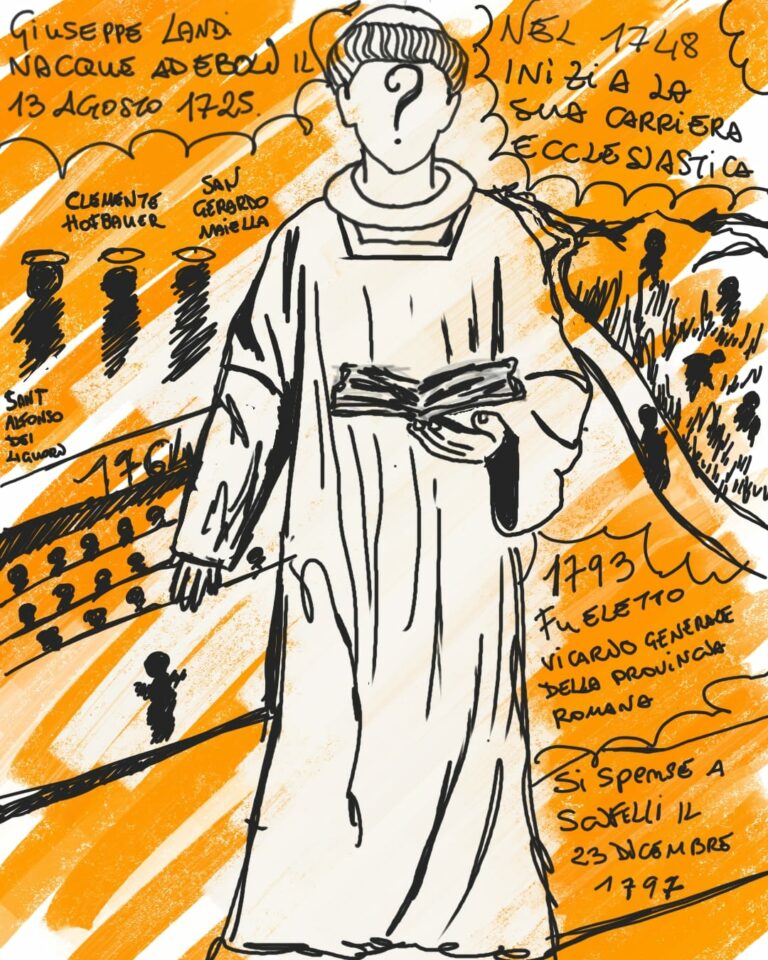 GIUSEPPE LANDI
NACQUE AD EBOLI IL
13 AGOSTO 1725.
NEL 1748
INIZIA LA
SUA CARRIERA
ECCLESIASTICA
?
CLEMENTE
HOFBAUER
SAN
GERARDO
MAIELLA
SANT
ALFONSO
DEI
LIGUORI
1764
1793
FU ELETTO
VICARIO GENERALE
DELLA PROVINCIA
ROMANA
SI SPENSE A
SCIFELLI IL
23 DICEMBRE
1797